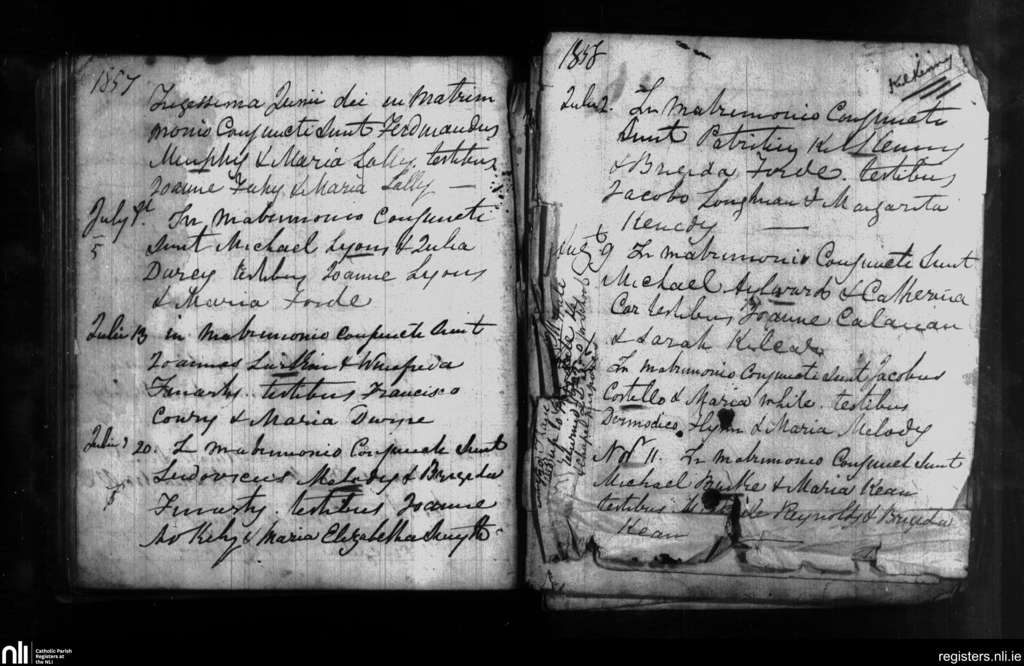 1857
Trigessima Junii dei in Matrim
monio Conjuncti Sunt Ferdinandus
Murphy & Maria Lally. testibus
Joanne & Maria Lally —
July
5
In Matrimonio Conjuncti
Sunt Michael Lyons & Julia
Darcy testibus Joanne Lyons
& Maria Forde
Julii 13 in Matrimonio Conjuncti Sunt
Joannes & Winefreda
Finarty. testibus Francisco
Conry & Maria Dwyre
Julii 20. In Matrimonio Conjuncti Sunt
Ludovicus Melody & Brigida
Finarty. testibus Joanne
& Maria Elizabetha Smyth
1858
Kilkenny
July 2. In Matrimonio Conjuncti
Sunt Patritius Kilkenny
& Brigida Forde. testibus
Jacobo Loughnan & Margarita
Kenedy —
9 In Matrimonio Conjuncti Sunt
Michael Aylward & Catherina
Car testibus Joanne Calanan
& Sarah
In Matrimonio Conjuncti Sunt Jacobus
Costello & Maria White. testibus
Dermodico Flynn & Maria Melody
Nov 11. In Matrimonio Conjuncti Sunt
Michael Burke & Maria Kean
testibus Reynolds & Brigida
Kean
nli
Catholic Parish
Registers at
the NLI
registers.nli.ie